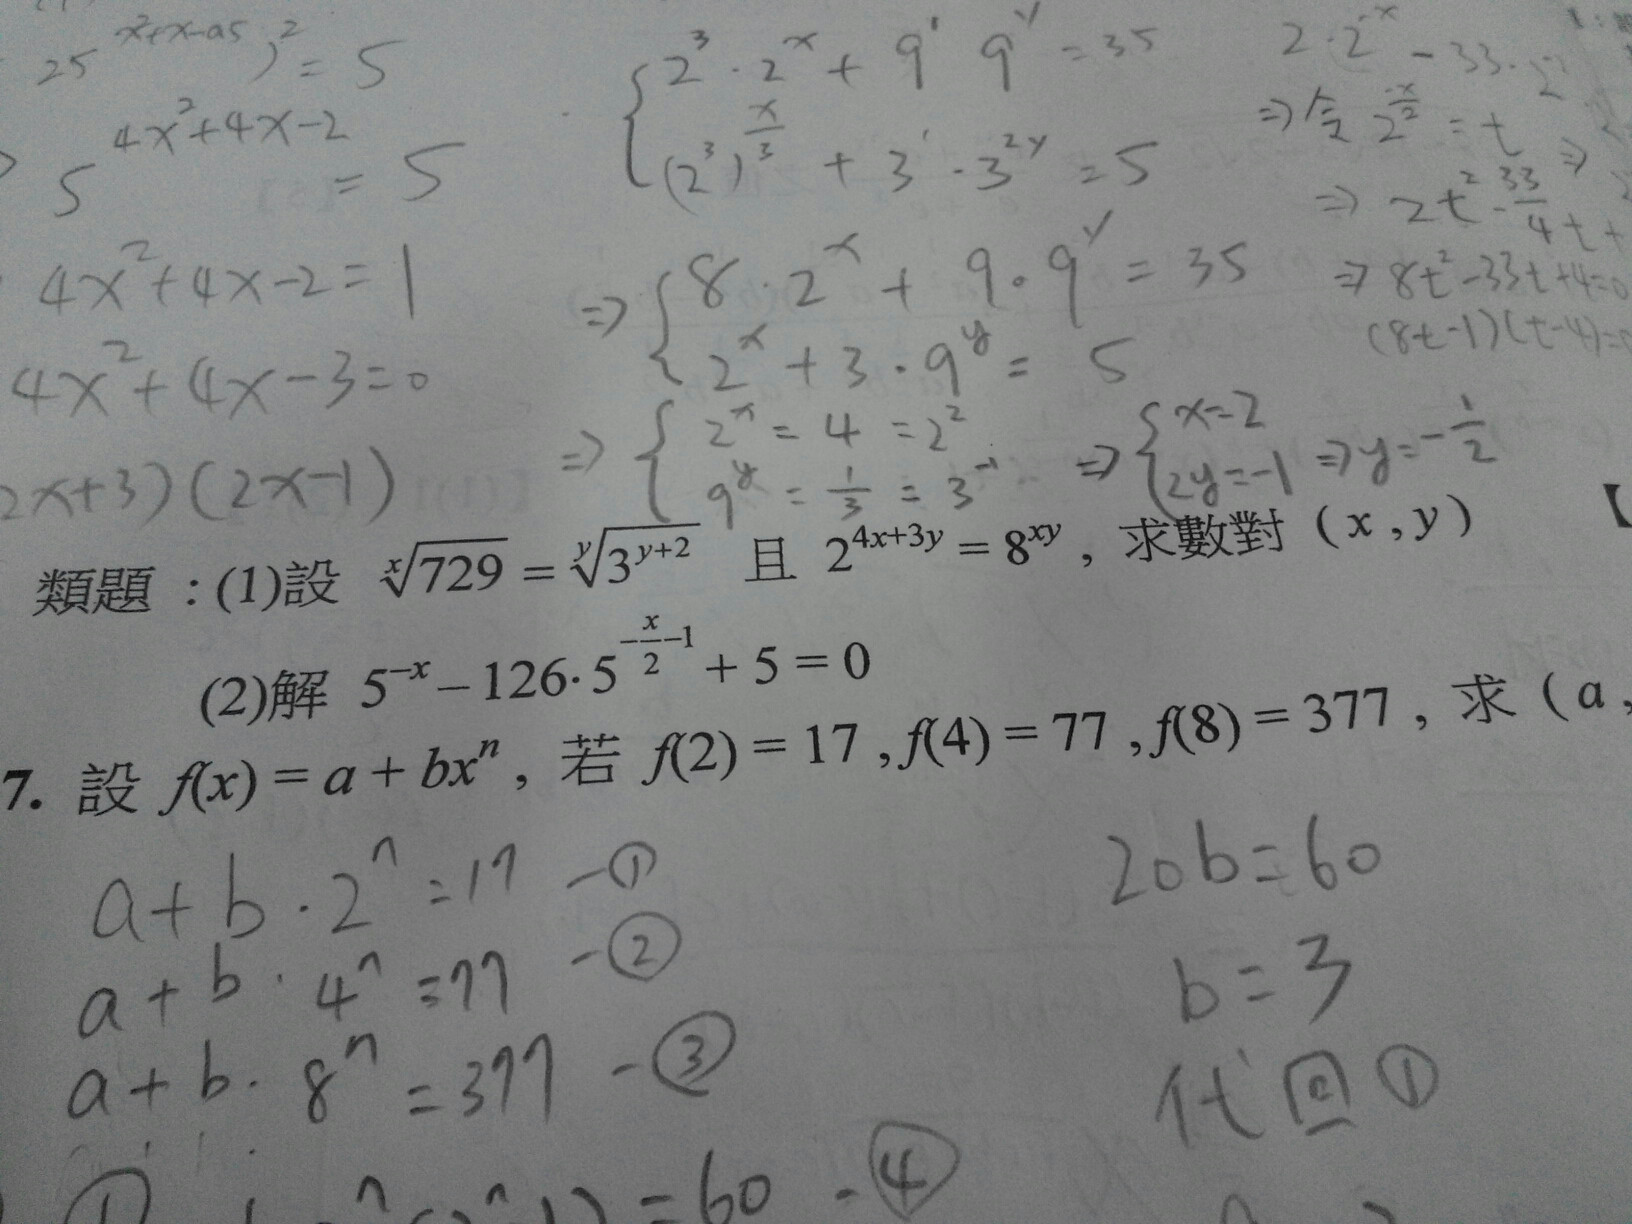 25^{x²+x-0.5})² = 5
5^{4x²+4x-2} = 5
4x²+4x-2=1
4x²+4x-3=0
2x+3)(2x-1)
{2³·2^x + 9¹ 9^y = 35
(2³)^{x/3} + 3¹·3^{2y} = 5
⇒ {8·2^x + 9·9^y = 35
2^x + 3·9^y = 5
⇒ {2^x = 4 = 2²
9^y = 1/3 = 3^{-1}
⇒ {x=2
2y=-1 ⇒ y=-1/2
2·2^{-x} - 33·2
⇒ 令 2^{-x/2} = t ⇒
⇒ 2t² - 33/4 t +
⇒ 8t²-33t+4=0
(8t-1)(t-4)=0
類題：(1)設 ^x√729 = ^y√3^{y+2} 且 2^{4x+3y} = 8^{xy}，求數對（x,y）【
(2)解 5^{-x} – 126·5^{-x/2-1} + 5 = 0
7. 設 f(x) = a + bx^n，若 f(2) = 17 , f(4) = 77 , f(8) = 377，求（a,
a+b·2^n=17 -①
a+b·4^n=77 -②
a+b·8^n=377 -③
=60 -④
20b=60
b=3
代回①